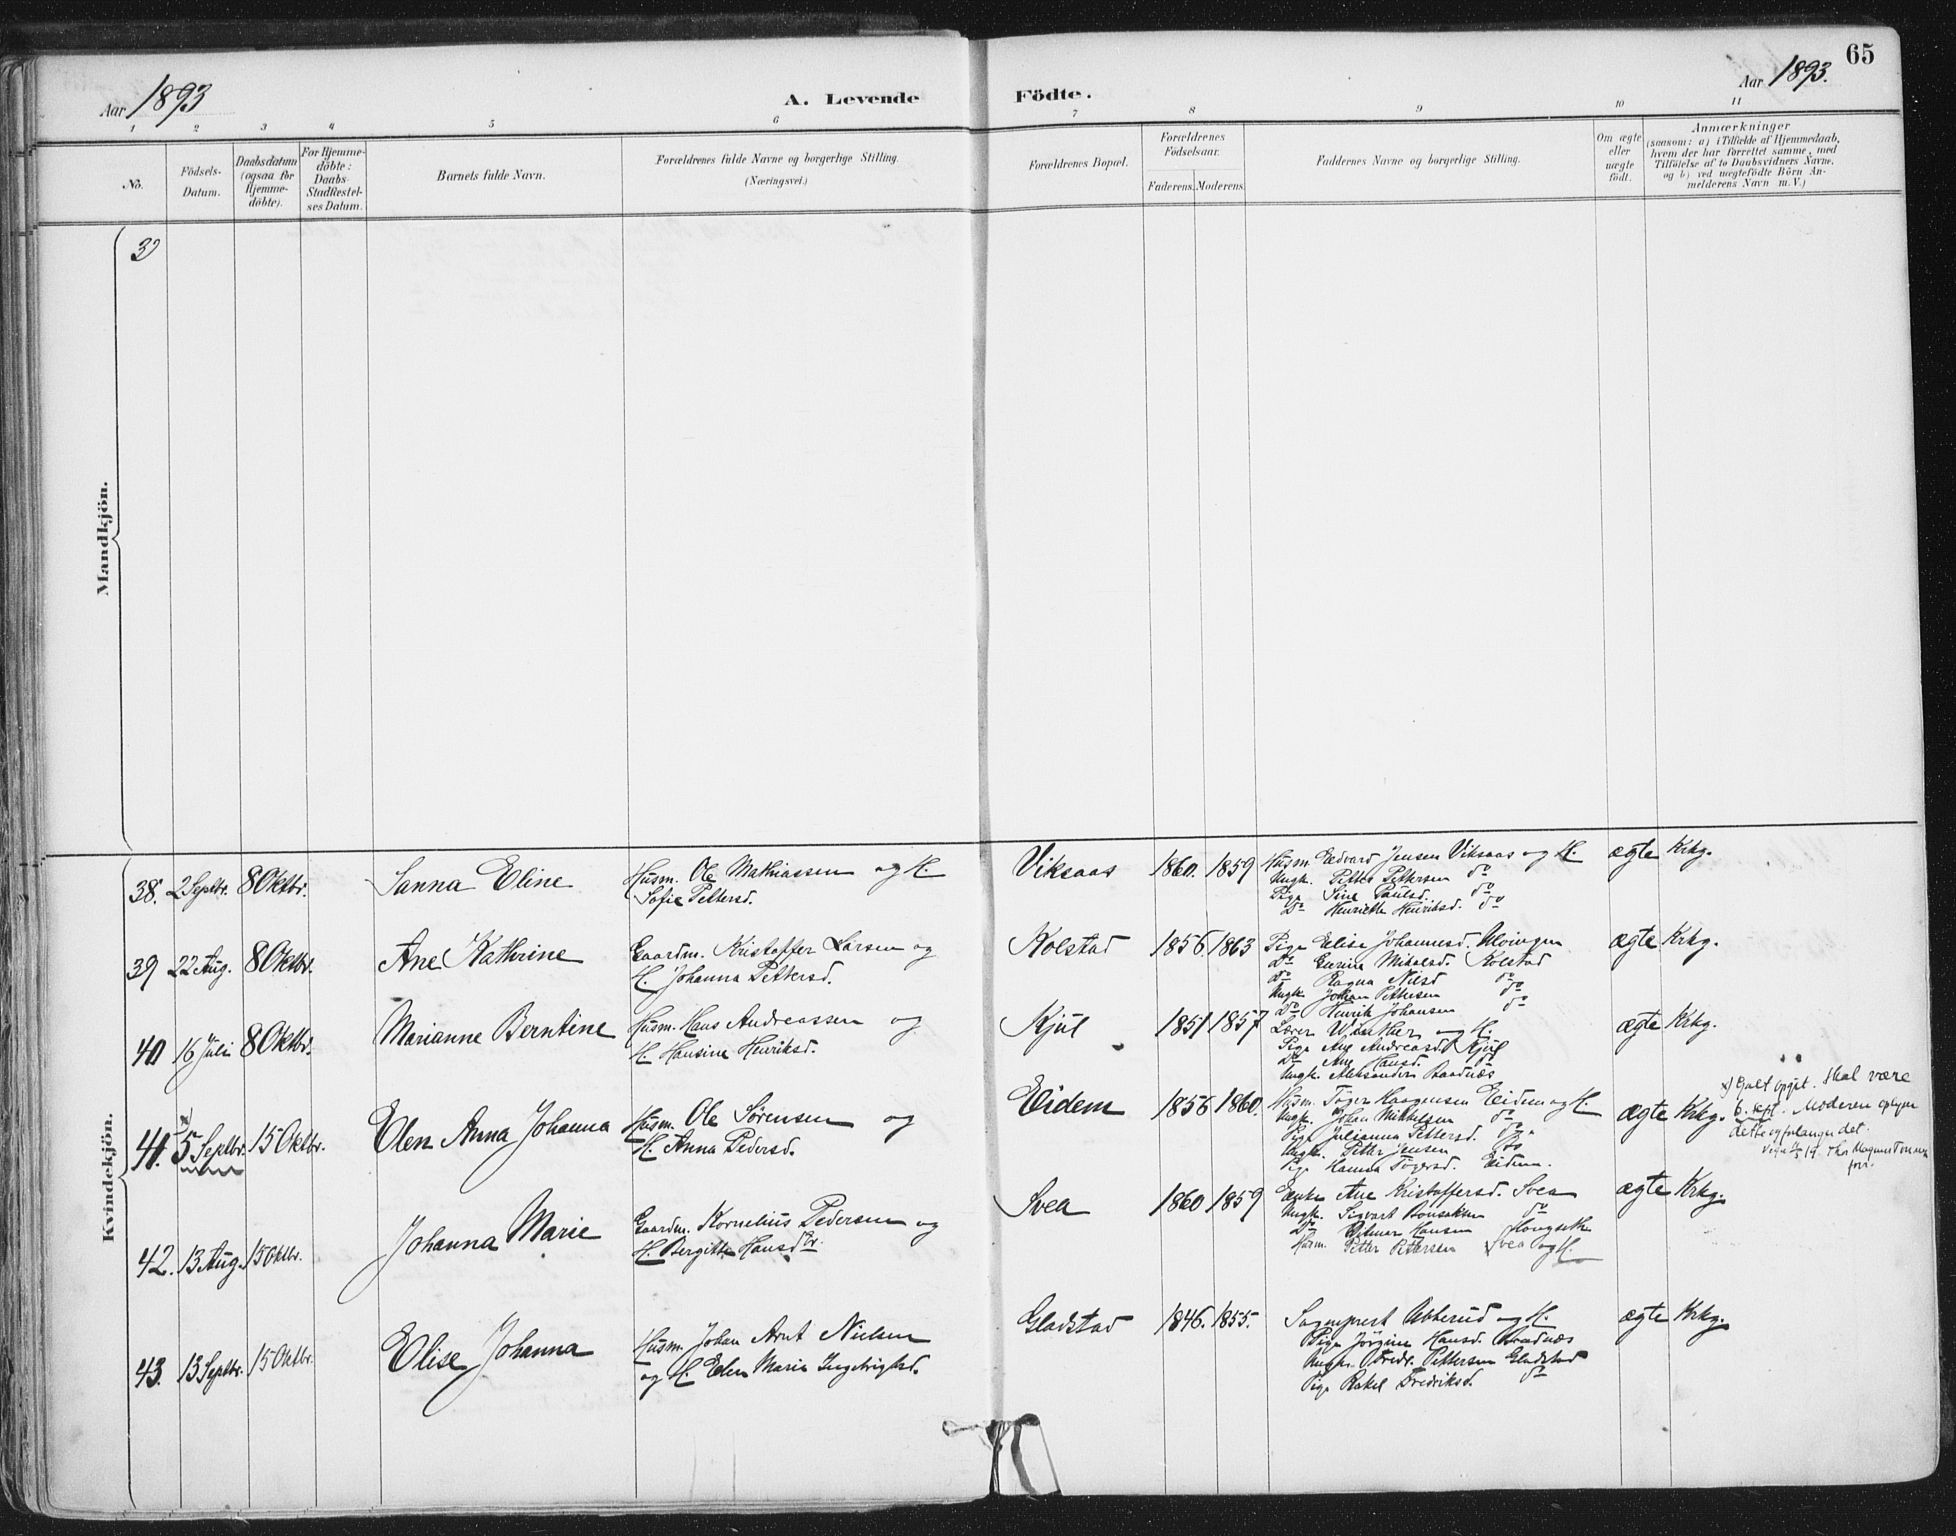 65
Aar 1893
A. Levende Födte.
Aar 1893.
1 2 3 4 5 6 7 8 9 10 11
No.
Födsels-
Datum.
Daabsdatum
(ogsaa for
Hjemme-
döbte).
For Hjemme-
döbte:
Daabs-
Stadfæstel-
ses Datum.
Barnets fulde Navn.
Forældrenes fulde Navne og borgerlige Stilling.
(Næringsvei.)
Forældrenes Bopæl.
Forældrenes
Födselsaar.
Faderens. Moderens.
Faddernes Navne og borgerlige Stilling.
Om ægte
eller
uægte
födt.
Anmærkninger
(saasom: a) i Tilfælde af Hjemmedaab,
hvem der har forrettet samme, med
Tilföielse af to Daabsvidners Navne.
og b) ved uægtefödte Börn An-
melderens Navn m.V.)
Mandkjön.
Kvindekjön.
38. 2 Septbr. 8 Oktbr. Sanna Eline
Husm. Ole Mathiassen og H.
Sofie Pettersd.
Viksaas 1860. 1859
Husm. Edvard Jensen Viksaas og H.
Ungk. Petter Pettersen do
Pige Sine Paulsd. do
Do Henriette Henriksd. do
ægte Krkg.
39 22 Aug. 8 Oktbr. Ane Kathrine
Gaardm. Kristoffer Larsen og
H. Johanna Pettersd.
Kolstad 1856 1863
Pige Elise Johannesd.
Do Mikalsd. Kolstad
do Ragna Nilsd do
Ungk. Johan Pettersen do
do Henrik Johansen do
ægte Krkg.
40 16 Juli 8 Oktbr. Marianne Berntine
Husm. Hans Andreassen og
H. Hansine Henriksd.
Kjul 1851 1857
Lærer Winther og H.
Pige Ane Andreasd. Kjul
Do Ane Hansd. do
Ungk. Aleksander Baadnæs
ægte Krkg.
41. x) 5 Septbr. 15 Oktbr. Elen Anna Johanna
Husm. Ole Sørensen og
H. Anna Pedersd.
Eidem 1856 1860.
Husm. Tøger Haagensen Eidem og H.
Ungk. Johan Mikkelsen do
Pige Julianna Pettersd. do
Ungk. Petter Jensen do
Pige Hanna Tøgersd. Eidem.
ægte Krkg.
x) Galt opgit. Skal være
6. sept. Moderen oplyser
dette og forlanger det.
42. 13 Aug. 15 Oktbr. Johanna Marie
Gaardm. Kornelius Pedersen og
H. Bergitte Hansdtr.
Svea 1860 1859
Enke Ane Kristoffersd. Svea
Ungk. Sigvart Bonsaksen do
Do Hansen
Husm. Petter Pettersen Svea og H.
ægte Krkg.
43. 13 Septbr. 15 Oktbr. Elise Johanna
Husm. Johan Arnt Nielsen
og H. Elen Marie Ingebrigtsd.
Gladstad 1846. 1855.
Sogneprest og H.
Pige Jörgine Hansd. Baadnæs
Ungk. Fredr. Pettersen Gladstad
Pige Rakel Fredriksd. do
ægte Krkg.